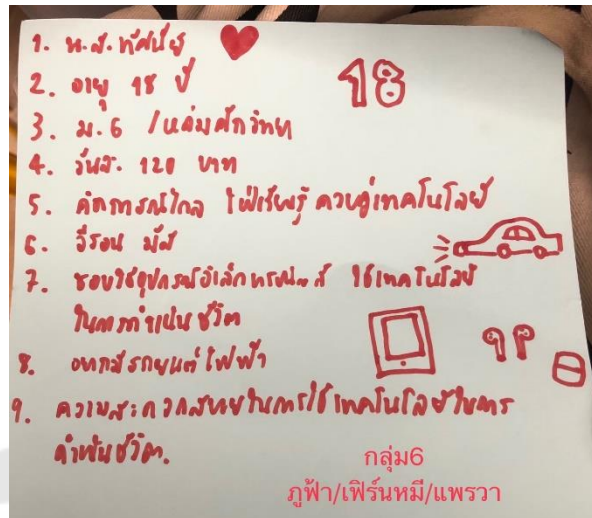 1. น.ส. ทัศนีย์
18
2. อายุ 18 ปี
3. ม.6 /หล่มสักวิทยา
4. วันละ 120 บาท
5. คิดการณ์ไกล ใฝ่เรียนรู้ ควบคู่เทคโนโลยี
6. อีรอน มัส
7. ชอบใช้อุปกรณ์อิเล็กทรอนิกส์ ใช้เทคโนโลยี
ในการดำเนินชีวิต
8. อยากมีรถยนต์ไฟฟ้า
9. ความสะดวกสบายในการใช้เทคโนโลยีในการ
ดำเนินชีวิต.
กลุ่ม6
ภูฟ้า/เฟิร์นหมี/แพรวา